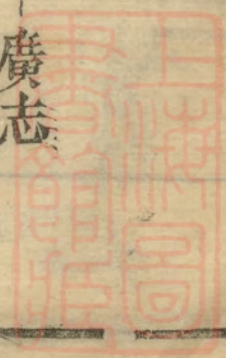 廣志
上海圖書館藏